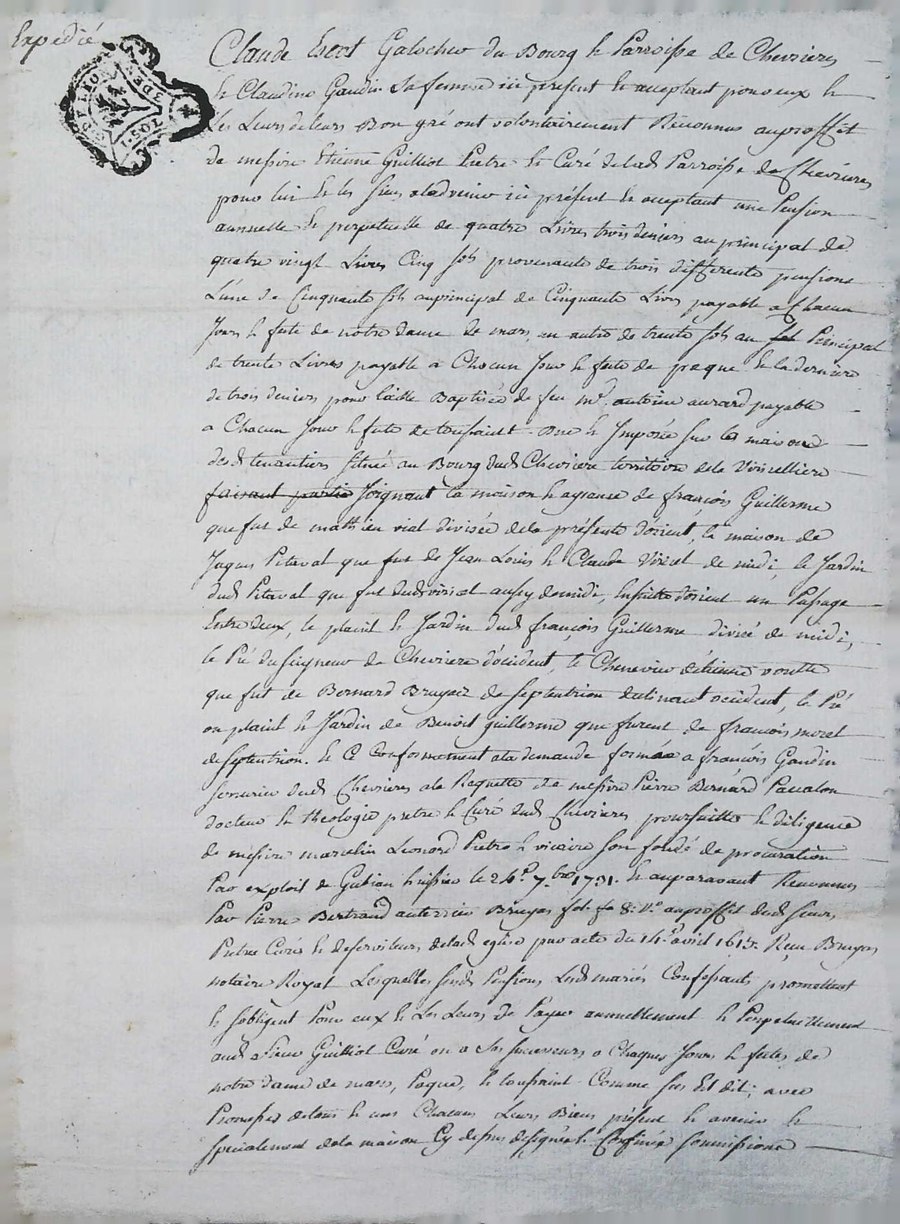 Expedié
DE LION
1. SOL
Claude Galocher du Bourg & Parroisse de Chevrieres
& Claudine Gaudin Sa femme ici present & acceptant pour eux &
les Leurs de leurs Bon gré ont volontairement Reconnus auproffit
de messire Etienne Guilliot Pretre & Curé delad Parroisse de Chevrieres
pour lui & les siens aladvenir ici présent & acceptant une Pension
annuelle & perpetuelle de quatre Livres trois deniers au principal de
quatre vingt Livres Cinq sols provenante de trois differente pensions
L'une de Cinquante sols auprincipal de Cinquante Livres payable a Chacun
Jours & fete de notre dame de mars, un autre de trente sols au Principal
de trente Livres payable a Chacun Jour & fete de paque & la derniere
de trois deniers pour Baptisée de feu mre. antoine payable
a Chacun Jour & fete de toussaint. due & Imposée sur maison
desd tenantiers située au Bourg dud Chevriere territoire dela
faisant partie Joignant la maison & aysance de françois Guillerme
que fut de mathieu vial divisée dela présente d'orient, la maison de
Jaques Pitaval que fut de Jean Louis & Claude Viricel de midi, le Jardin
dud Pitaval que fut dud viricel aussy de midi, d'orient un Passage
Entre deux, le plaint & Jardin dud françois Guillerme divisé de midi,
le Pré du Seigneur de Chevriere d'occident, le Chenevier d'étienne
que fut de Bernard Bruyas de septentrion declinant occident, le Pré
ou plaint & Jardin de Benoit guillerme que furent de francois morel
de septentrion. & Ce Conformement ala demande formée a françois Gaudin
dud Chevrieres ala Requette de messire Pierre Bernard
docteur & theologie pretre & Curé dud Chevrieres poursuitte & diligence
de messire marcelin Leonard Pretre & vicaire son fondé de procuration
Par exploit de Gubian huissier le 24e. 7bre 1731. & auparavant Reconnus
Par Pierre Bertrand Bruyas fol 8. Vo. auproffit dud sieurs
Pretre Curés & deserviteurs delad eglise par acte du 14e. avril 1613. Reçu Bruyas
notaire Royal Lesquelles susd Pensions Lesd mariés Confessants promettent
& sobligent Pour eux & Les Leurs de Payer annuellement & Perpetuellement
aud Sieur Guilliot Curé ou a Ses successeurs a Chaques Jours & fetes de
notre dame de mars, Paque, & toussaint Comme sus Est dit; avec
Promesses de tous & uns Chacuns Leurs Biens présent & avenir &
specialement dela maison Cy dessus designée & Confinée soumissions